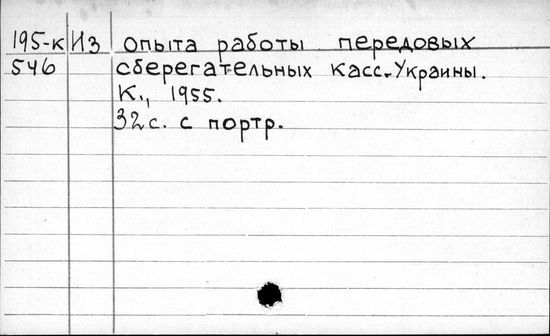 195-к Из опыта работы передовых
546 сберегательных касс Украины.
К., 1955.
32 с. с портр.